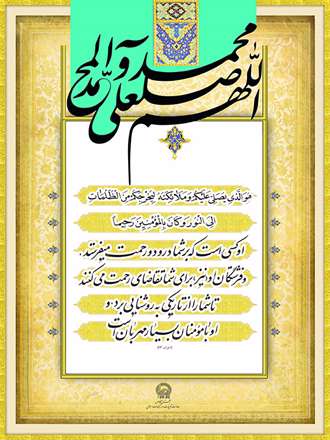 اللهم صل علی محمد و آل محمد
هُوَ الَّذِي يُصَلِّي عَلَيْكُمْ وَمَلَائِكَتُهُ لِيُخْرِجَكُمْ مِنَ الظُّلُمَاتِ
إِلَى النُّورِ وَكَانَ بِالْمُؤْمِنِينَ رَحِيمًا
او کسی است که بر شما درود و رحمت میفرستد،
و فرشتگان او نیز برای شما تقاضای رحمت می‌کنند
تا شما را از تاریکی به روشنایی برد؛ و
او با مؤمنان بسیار مهربان است